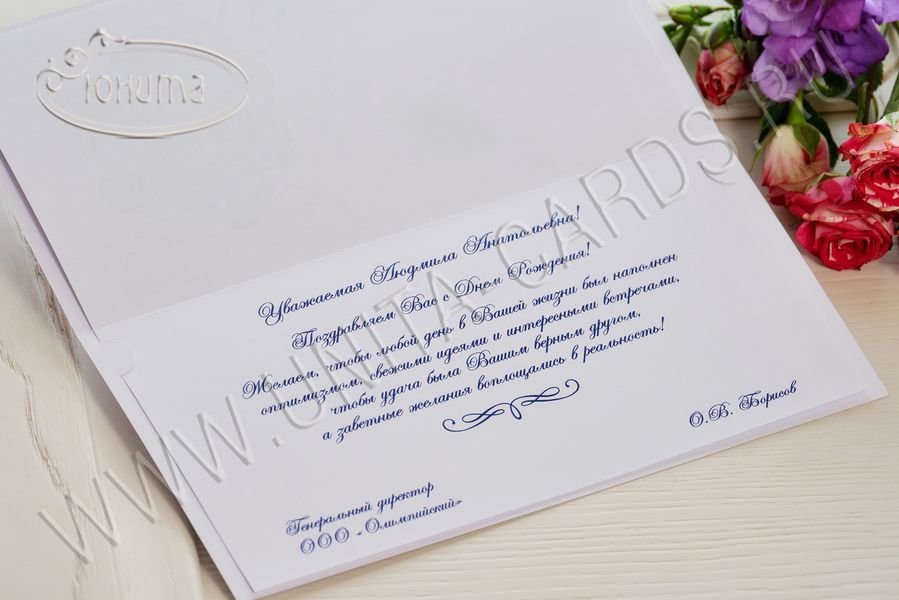 Юнита
Уважаемая Людмила Анатольевна!
Поздравляем Вас с Днем Рождения!
Желаем, чтобы любой день в Вашей жизни был наполнен
оптимизмом, свежими идеями и интересными встречами,
чтобы удача была Вашим верным другом,
а заветные желания воплощались в реальность!
О.В. Борисов
Генеральный директор
ООО «Олимпийский»
WWW.UNITA-CARDS.RU